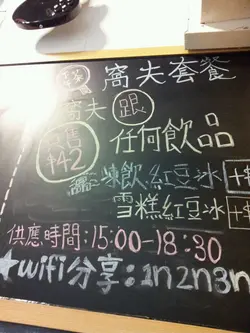 窩夫套餐
窩夫 跟
只售 任何飲品
$42
凍飲 紅豆冰 +$
雪糕紅豆冰 +$
供應時間:15:00-18:30
★wifi分享:1n2n3n